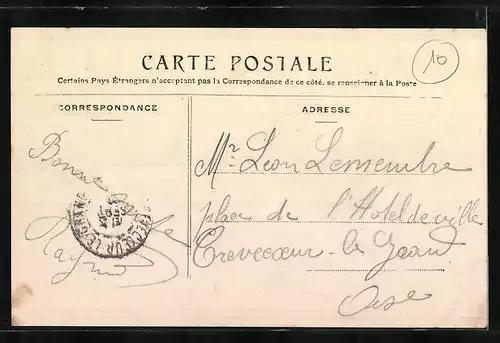 CARTE POSTALE
Certains Pays Étrangers n'acceptant pas la Correspondance de ce côté, se renseigner à la Poste
10
CORRESPONDANCE
ADRESSE
Bonne
Mr Leon Lemembre
place de l'Hotel de ville
Crevecœur-le Grand
Oise